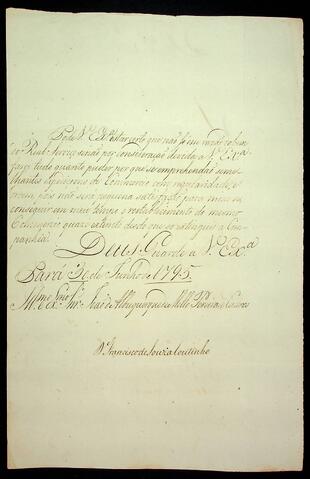 Pode V. Exa. estar certo que não só em razão do bem
do Real Serviço senão por consideração devida a V. Exa.
farei tudo quanto puder por que se emprehendão seme-
lhantes expediçoens de Commercio com regularidade, e
ordem, pois não será pequena satisfação para mim o
conseguir em meu tempo o restabelecimento do mesmo
Commercio quazi extincto desde que se extinguio a Com-
panhia.
Deos Gde. a V. Exa.
Pará 30 de Junho de 1795.
Illmo. e Exmo. Snr. João de Albuquerque de Mello Pereira e Caceres
D. Francisco de Souza Coutinho